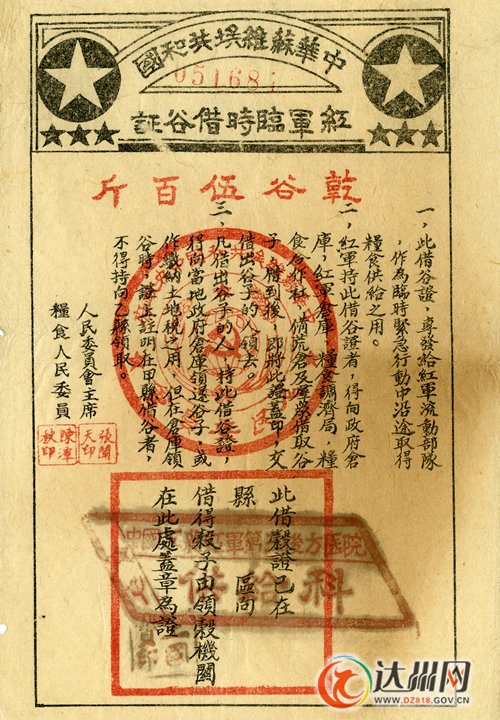 中華蘇維埃共和國
05168
紅軍臨時借谷証
乾谷伍百斤
一，此借谷證，專發給紅軍流動部隊
，作為臨時緊急行動中沿途取得
糧食供給之用。
二，紅軍持此借谷證者，得向政府倉
庫，紅軍倉庫，糧食調濟局，糧
食合作社，備荒倉及羣眾借取谷
子，借到後，即將此證蓋印，交
借出谷子的人領去。
三，凡借出谷子的人，持此借谷證，
得向當地政府倉庫領還谷子，或
作繳納土地稅之用，但在倉庫領
谷時，證上註明在甲縣借谷者，
不得持向乙縣領取。
人民委員會主席
張聞天印
糧食人民委員
陳潭秋印
此借穀證已在
縣 區向
借得穀子由領穀機關
在此處蓋章為證
後方醫院
供給科
达州网
WWW.DZ818.GOV.CN